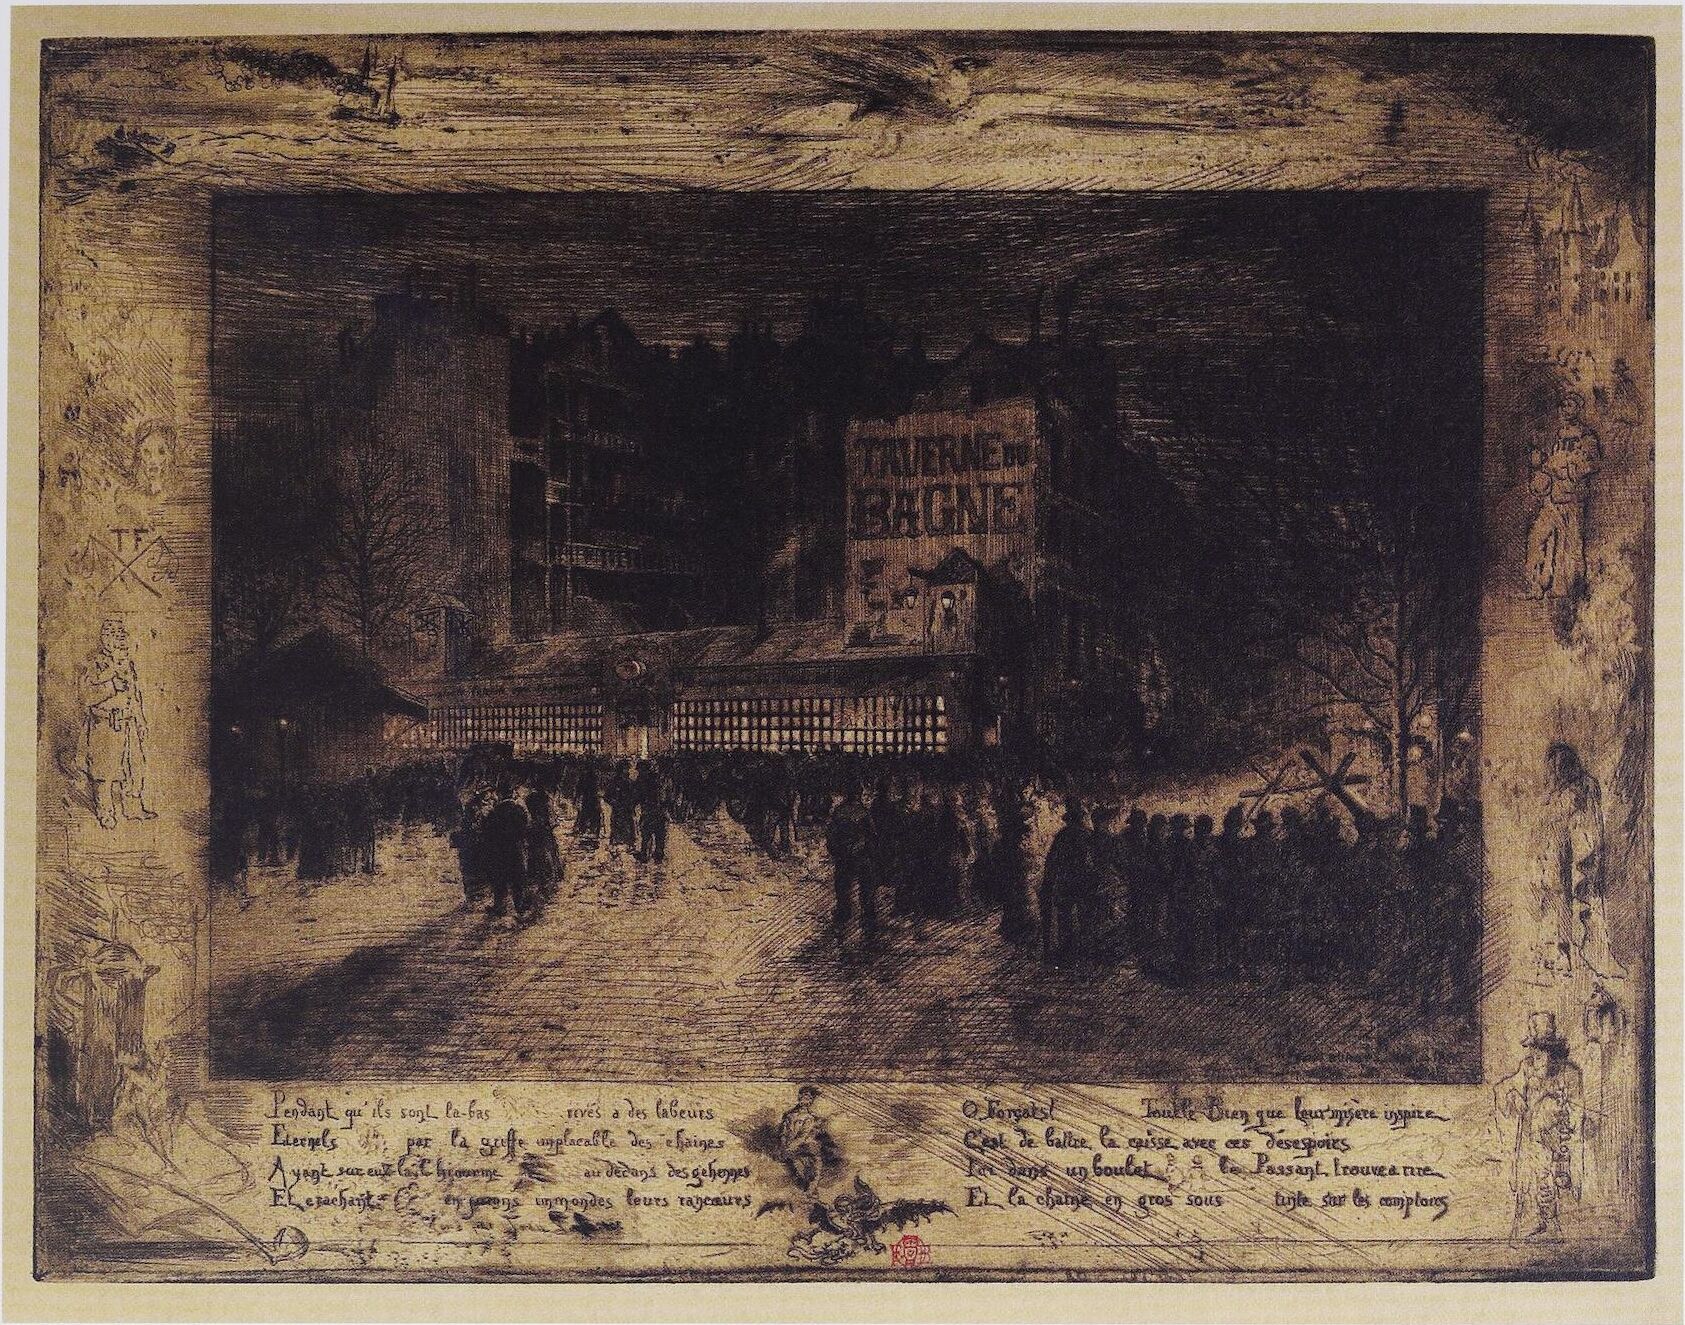 TAVERNE DU
BAGNE
TF
Pendant qu'ils sont la-bas rivés a des labeurs
Eternels par la griffe implacable des chaines
Ayant sur eux l'œil au dedans des gehennes
Et crachant en jurons immondes leurs rancœurs
O Forçats! Bien que leur misère inspire
C'est de battre la caisse avec ces désespoirs
Ici dans un boulet le Passant trouve a rire
Et la chaine en gros sous tinte sur les comptoirs